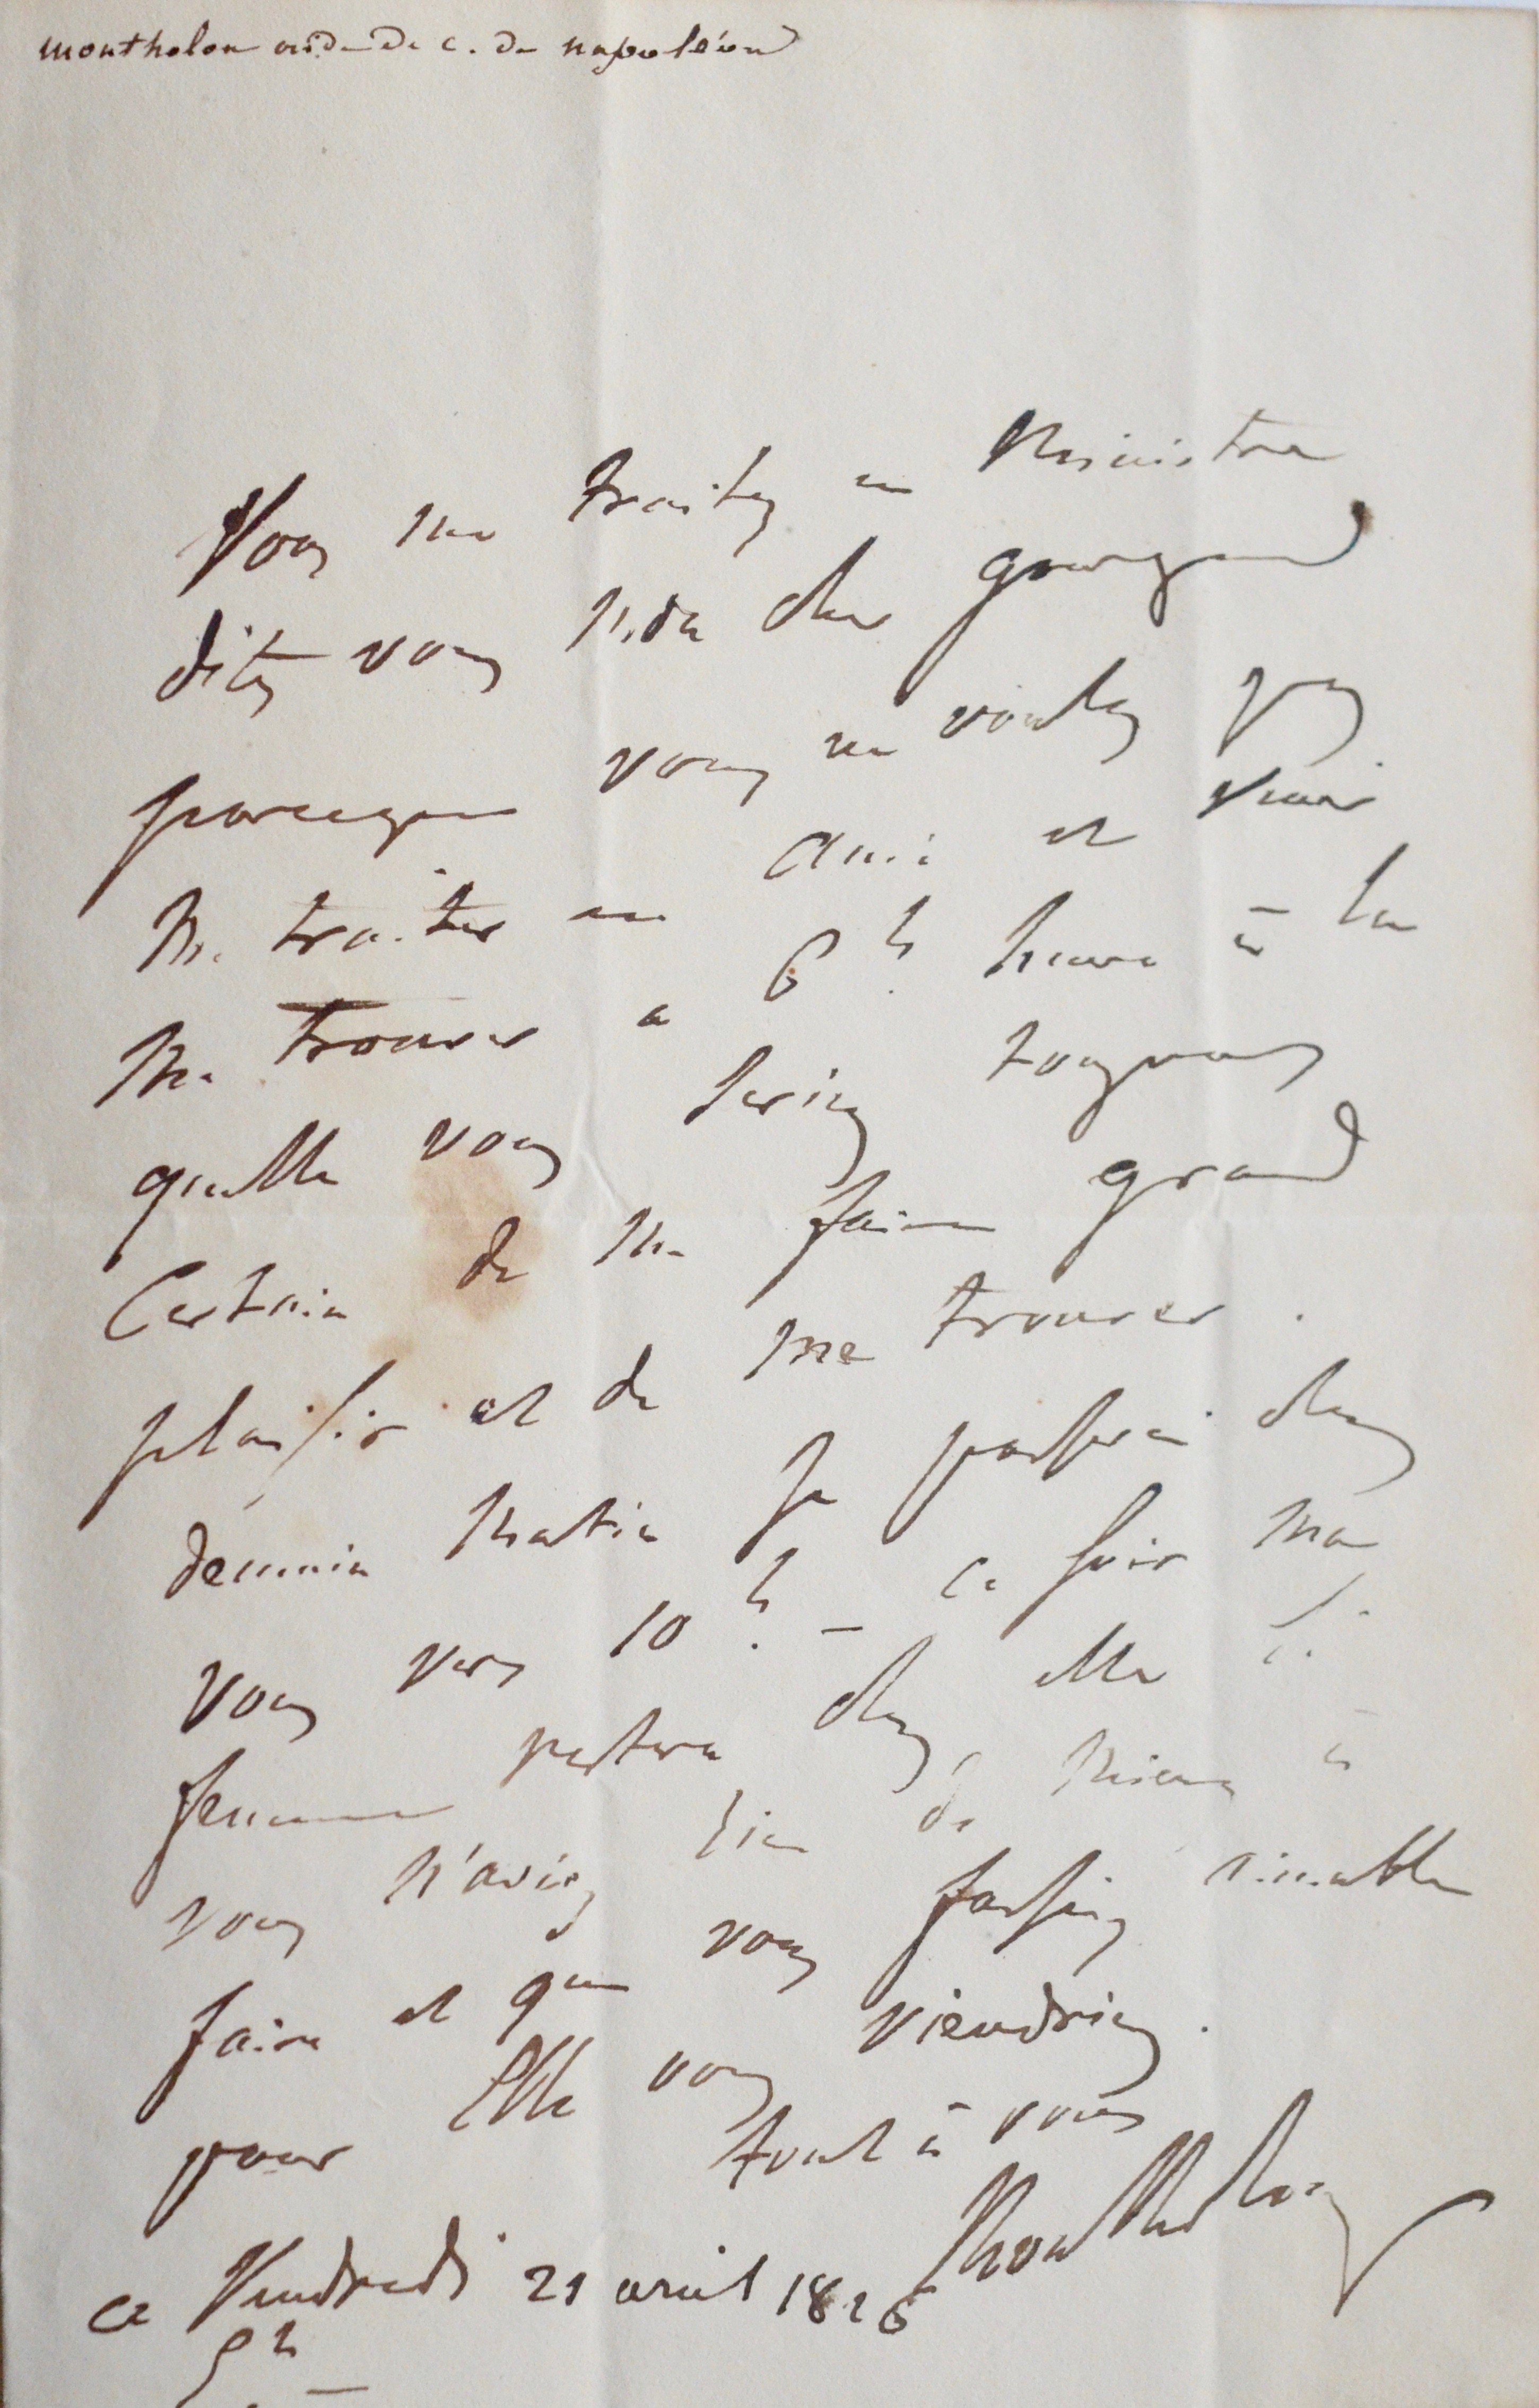 montholon aide de c. de napoléon
Vous me traitez en Ministre
dites vous mon cher gourgaud
parceque vous ne voulez pas
me traiter en ami et venir
me trouver a 6 h heure à la
quelle vous seriez toujours
Certain de me faire grand
plaisir et de me trouver.
demain matin je passerai chez
vous vers 10 h. – ce soir ma
femme restera chez elle si
vous n'aviez rien de mieux à
faire et que vous fussiez aimable
pour Elle vous viendriez.
tout à vous
Montholon
ce Vendredi 21 avril 1826
5 h